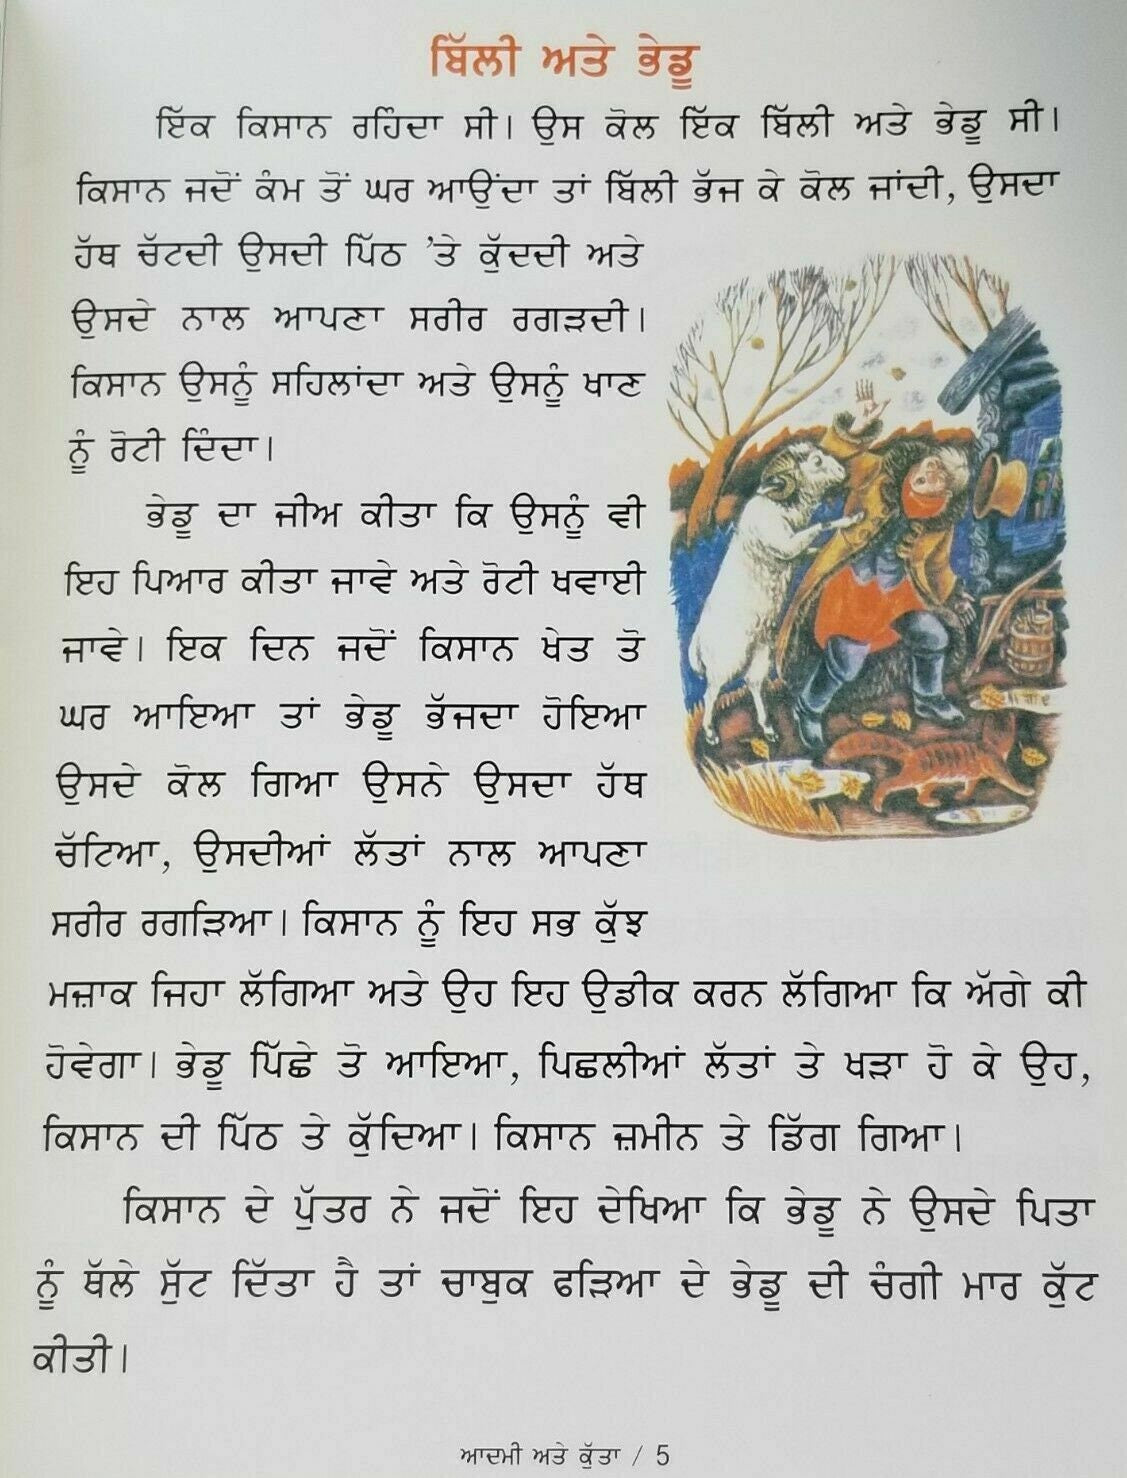 ਬਿੱਲੀ ਅਤੇ ਭੇਡੂ
ਇੱਕ ਕਿਸਾਨ ਰਹਿੰਦਾ ਸੀ। ਉਸ ਕੋਲ ਇੱਕ ਬਿੱਲੀ ਅਤੇ ਭੇਡੂ ਸੀ।
ਕਿਸਾਨ ਜਦੋਂ ਕੰਮ ਤੋਂ ਘਰ ਆਉਂਦਾ ਤਾਂ ਬਿੱਲੀ ਭੱਜ ਕੇ ਕੋਲ ਜਾਂਦੀ, ਉਸਦਾ
ਹੱਥ ਚੱਟਦੀ ਉਸਦੀ ਪਿੱਠ ’ਤੇ ਕੁੱਦਦੀ ਅਤੇ
ਉਸਦੇ ਨਾਲ ਆਪਣਾ ਸਰੀਰ ਰਗੜਦੀ।
ਕਿਸਾਨ ਉਸਨੂੰ ਸਹਿਲਾਂਦਾ ਅਤੇ ਉਸਨੂੰ ਖਾਣ
ਨੂੰ ਰੋਟੀ ਦਿੰਦਾ।
ਭੇਡੂ ਦਾ ਜੀਅ ਕੀਤਾ ਕਿ ਉਸਨੂੰ ਵੀ
ਇਹ ਪਿਆਰ ਕੀਤਾ ਜਾਵੇ ਅਤੇ ਰੋਟੀ ਖਵਾਈ
ਜਾਵੇ। ਇਕ ਦਿਨ ਜਦੋਂ ਕਿਸਾਨ ਖੇਤ ਤੋ
ਘਰ ਆਇਆ ਤਾਂ ਭੇਡੂ ਭੱਜਦਾ ਹੋਇਆ
ਉਸਦੇ ਕੋਲ ਗਿਆ ਉਸਨੇ ਉਸਦਾ ਹੱਥ
ਚੱਟਿਆ, ਉਸਦੀਆਂ ਲੱਤਾਂ ਨਾਲ ਆਪਣਾ
ਸਰੀਰ ਰਗੜਿਆ। ਕਿਸਾਨ ਨੂੰ ਇਹ ਸਭ ਕੁੱਝ
ਮਜ਼ਾਕ ਜਿਹਾ ਲੱਗਿਆ ਅਤੇ ਉਹ ਇਹ ਉਡੀਕ ਕਰਨ ਲੱਗਿਆ ਕਿ ਅੱਗੇ ਕੀ
ਹੋਵੇਗਾ। ਭੇਡੂ ਪਿੱਛੇ ਤੋ ਆਇਆ, ਪਿਛਲੀਆਂ ਲੱਤਾਂ ਤੇ ਖੜਾ ਹੋ ਕੇ ਉਹ,
ਕਿਸਾਨ ਦੀ ਪਿੱਠ ਤੇ ਕੁੱਦਿਆ। ਕਿਸਾਨ ਜ਼ਮੀਨ ਤੇ ਡਿੱਗ ਗਿਆ।
ਕਿਸਾਨ ਦੇ ਪੁੱਤਰ ਨੇ ਜਦੋਂ ਇਹ ਦੇਖਿਆ ਕਿ ਭੇਡੂ ਨੇ ਉਸਦੇ ਪਿਤਾ
ਨੂੰ ਥੱਲੇ ਸੁੱਟ ਦਿੱਤਾ ਹੈ ਤਾਂ ਚਾਬੁਕ ਫੜਿਆ ਦੇ ਭੇਡੂ ਦੀ ਚੰਗੀ ਮਾਰ ਕੁੱਟ
ਕੀਤੀ।
ਆਦਮੀ ਅਤੇ ਕੁੱਤਾ / 5